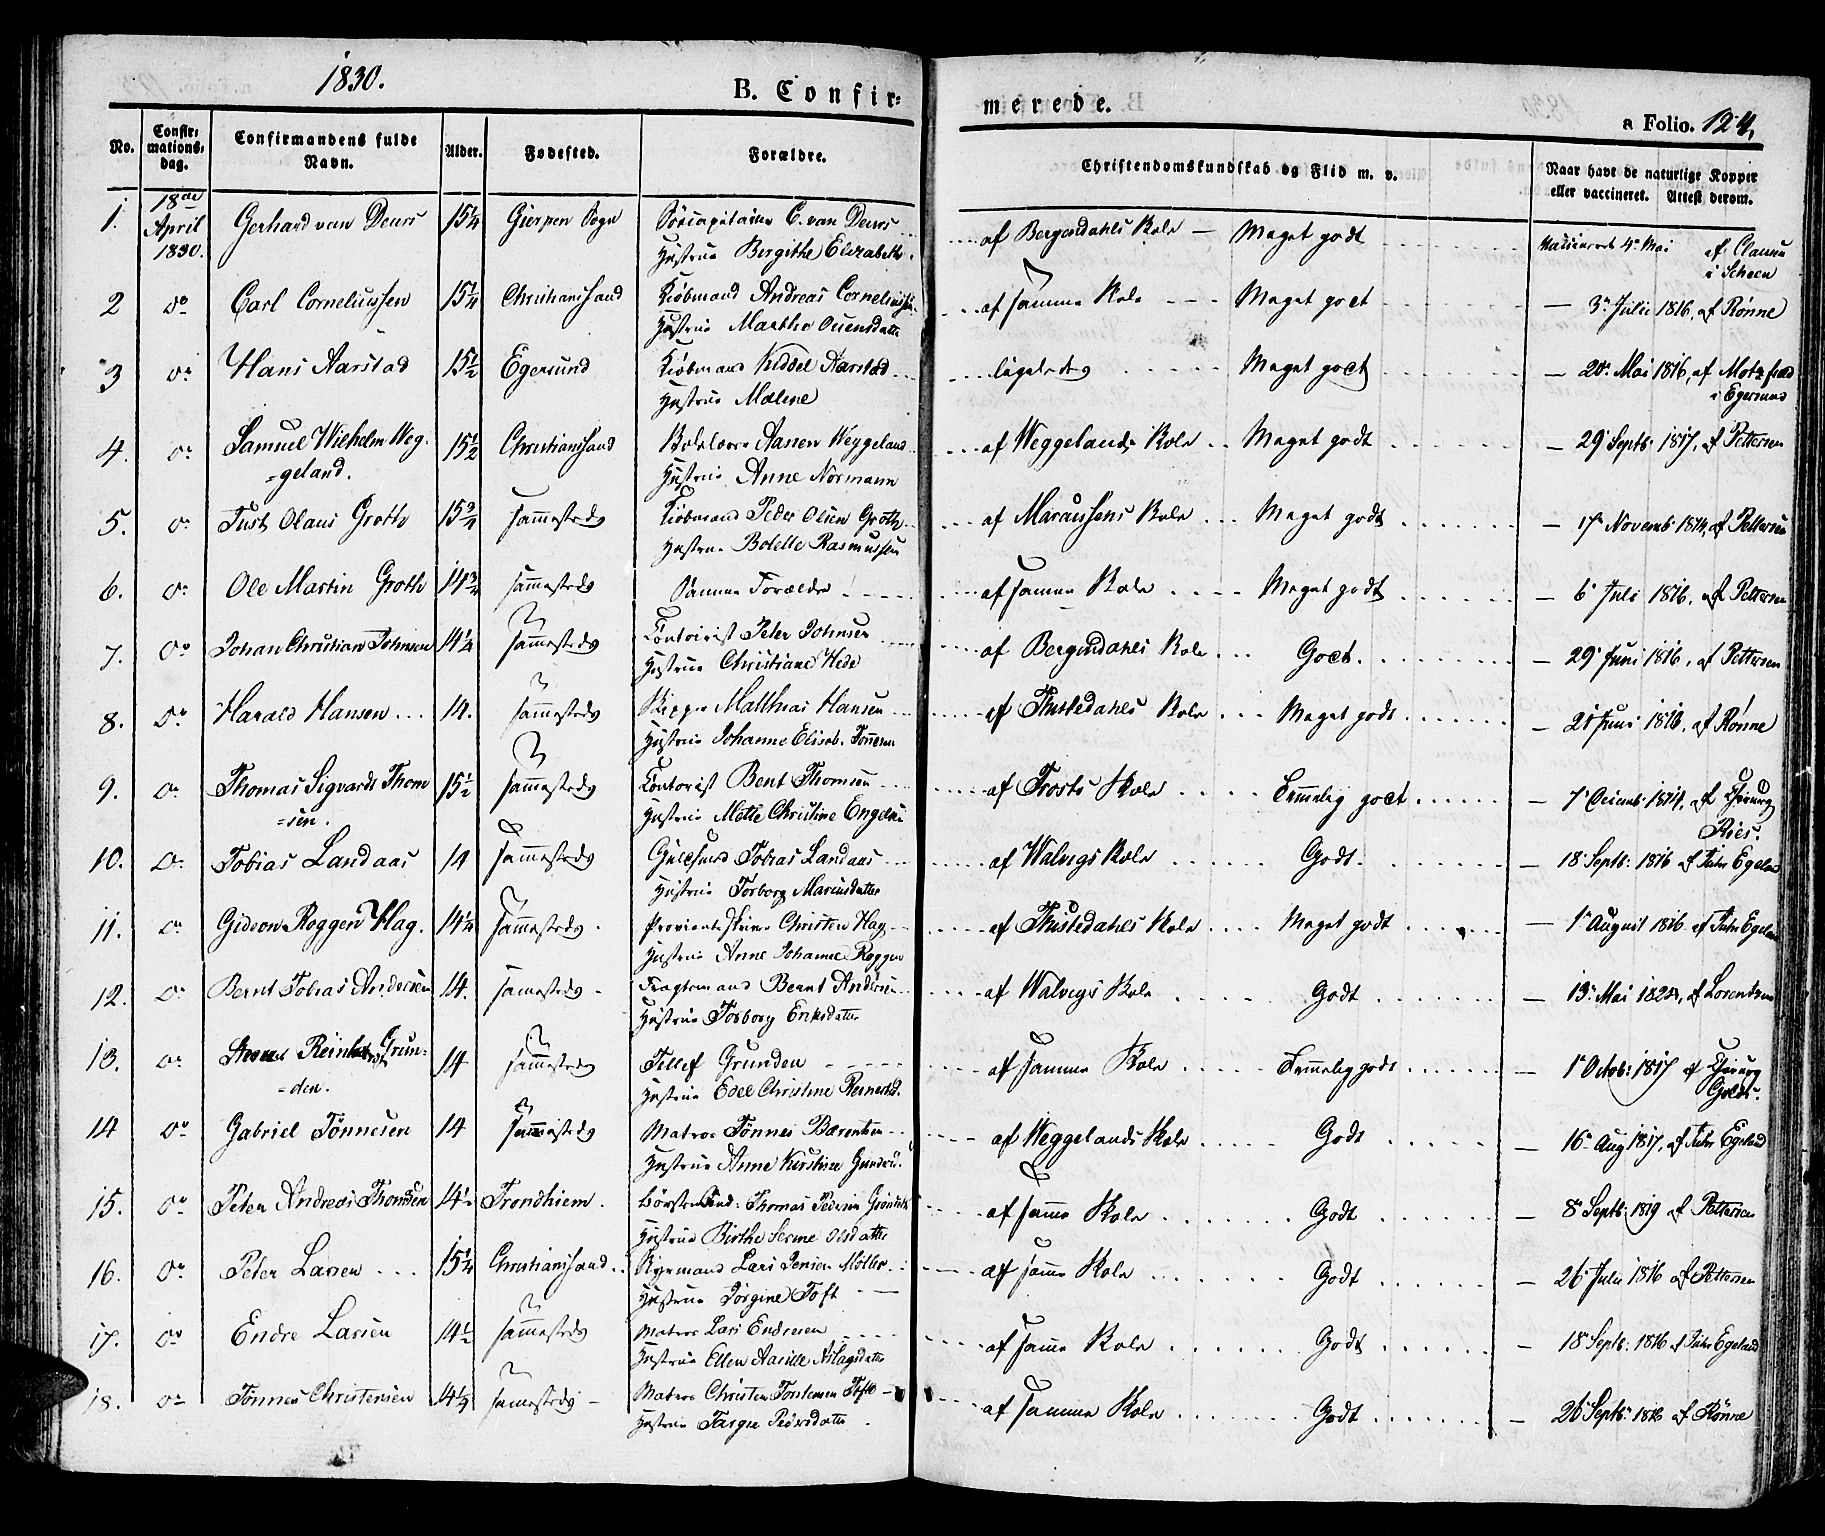 1830.
B. Confir=
merede.
a Folio. 124.
No.
Confir=
mations=
dag.
Confirmandens fulde
Navn.
Alder.
Fødested.
Forældre.
Christendomskundskab og Flid m. v.
Naar havt de naturlige Kopper
eller vaccineret. Attest derom.
1. 18de April 1830. Gerhard van Deurs 15¼ Gierpen Sogn Søecapitaine C. van Deurs
Hustrue Bergithe Elizabeth
af Bergendahls Skole — Meget godt
Vaccineret 4de Mai af Clausen
i Scheen
2 do Carl Corneliussen 15¼ Christiansand Kiøbmand Andreas Corneliussen
Hustrue Marthe Ouensdatter
af samme Skole Meget godt — 3de Julii 1816, af Rønne
3 do Hans Aarstad 15½ Egersund Kiøbmand Kiddel Aarstad
Hustrue Malene
ligeledes Meget godt — 20de Mai 1816, af Motzfeld
i Egersund
4. do Samuel Wilhelm Weg=
=geland. 15½ Christiansand Skolelærer Aanen Weggeland
Hustrue Anne Normann
af Weggelands Skole Meget godt — 29 Septb 1817, af Pettersen
5. do Just Olaus Groth 15¾ sammesteds Kiøbmand Peder Olsen Groth
Hustrue Bolette Rasmussen
af Marcussens Skole Meget godt — 17de Novemb 1814, af Pettersen
6. do Ole Martin Groth 14¾ sammesteds Samme Forældre
af samme Skole Meget godt — 6 Juli 1816, af Pettersen
7. do Johan Christian Johnsen 14¼ sammesteds Contoirist Peter Johnsen
Hustrue Christiane Hede
af Bergendahls Skole Godt. — 29 Juni 1816, af Pettersen
8. do Harald Hansen 14. sammesteds Skipper Matthias Hansen
Hustrue Johanne Elisab. Tønnesen
af Thistedahls Skole Meget godt — 21 Juni 1816, af Rønne
9. do Thomas Sigvardt Thom
=sen. 15½ sammesteds Contorist Bent Thomsen
Hustrue Mette Christine
af Frosts Skole Temmelig godt — 7de Decemb 1814, af Chirurg
Ries.
10. do Tobias Landaas 14 sammesteds Guldsmed Tobias Landaas
Hustrue Torborg Mariusdatter
af Walvigs Skole Godt. — 18 Septb: 1816 af Egeland
11. do Gideon Roggen Hag. 14¼ sammesteds. Proviantskriver Christen Hag
Hustrue Anne Johanne Roggen
af Thistedahls Skole Meget godt — 1de August 1816 af Egeland
12. do Bernt Tobias Andersen 14. sammesteds Fragtemand Bernt Andersen
Hustrue Torborg Eriksdatter
af Walvigs Skole Godt — 13de Mai 1824, af Lorentzen
13. do Reinhardt Grun=
=den. 14 sammesteds Tellef Grunden
Hustrue Edel Christine
af samme Skole Temmelig godt — 1de Octob: 1817 af Chirurg
14 do Gabriel Tønnesen 14 sammesteds Matros Tønnes Bærentsen
Hustrue Anne Kirstine
af Weggelands Skole Godt — 16de Aug 1817, af Egeland
15. do Peter Andreas Thomsen 14½ Trondhiem. Thomas Pedersen
Hustrue Birthe Serine Olsdatter
af samme Skole Godt — 8de Septb: 1819 af Pettersen
16. do Peter Larsen 15¼ Christiansand Styrmand Lars Jensen Møller
Hustrue Jørgine Toft
af samme Skole Godt — 26de Julii 1816 af Pettersen
17. do Endre Larsen 14½ sammesteds Matros Lars Endresen
Hustrue Ellen Aslagsdatter
af samme Skole Godt — 18de Septb: 1816 af Egeland
18. do Tønnes Christensen 14½ sammesteds Matros Christen Torstensen
Hustrue Pedersdatter
af samme Skole Godt — 26 Septb. 1816 af Rønne